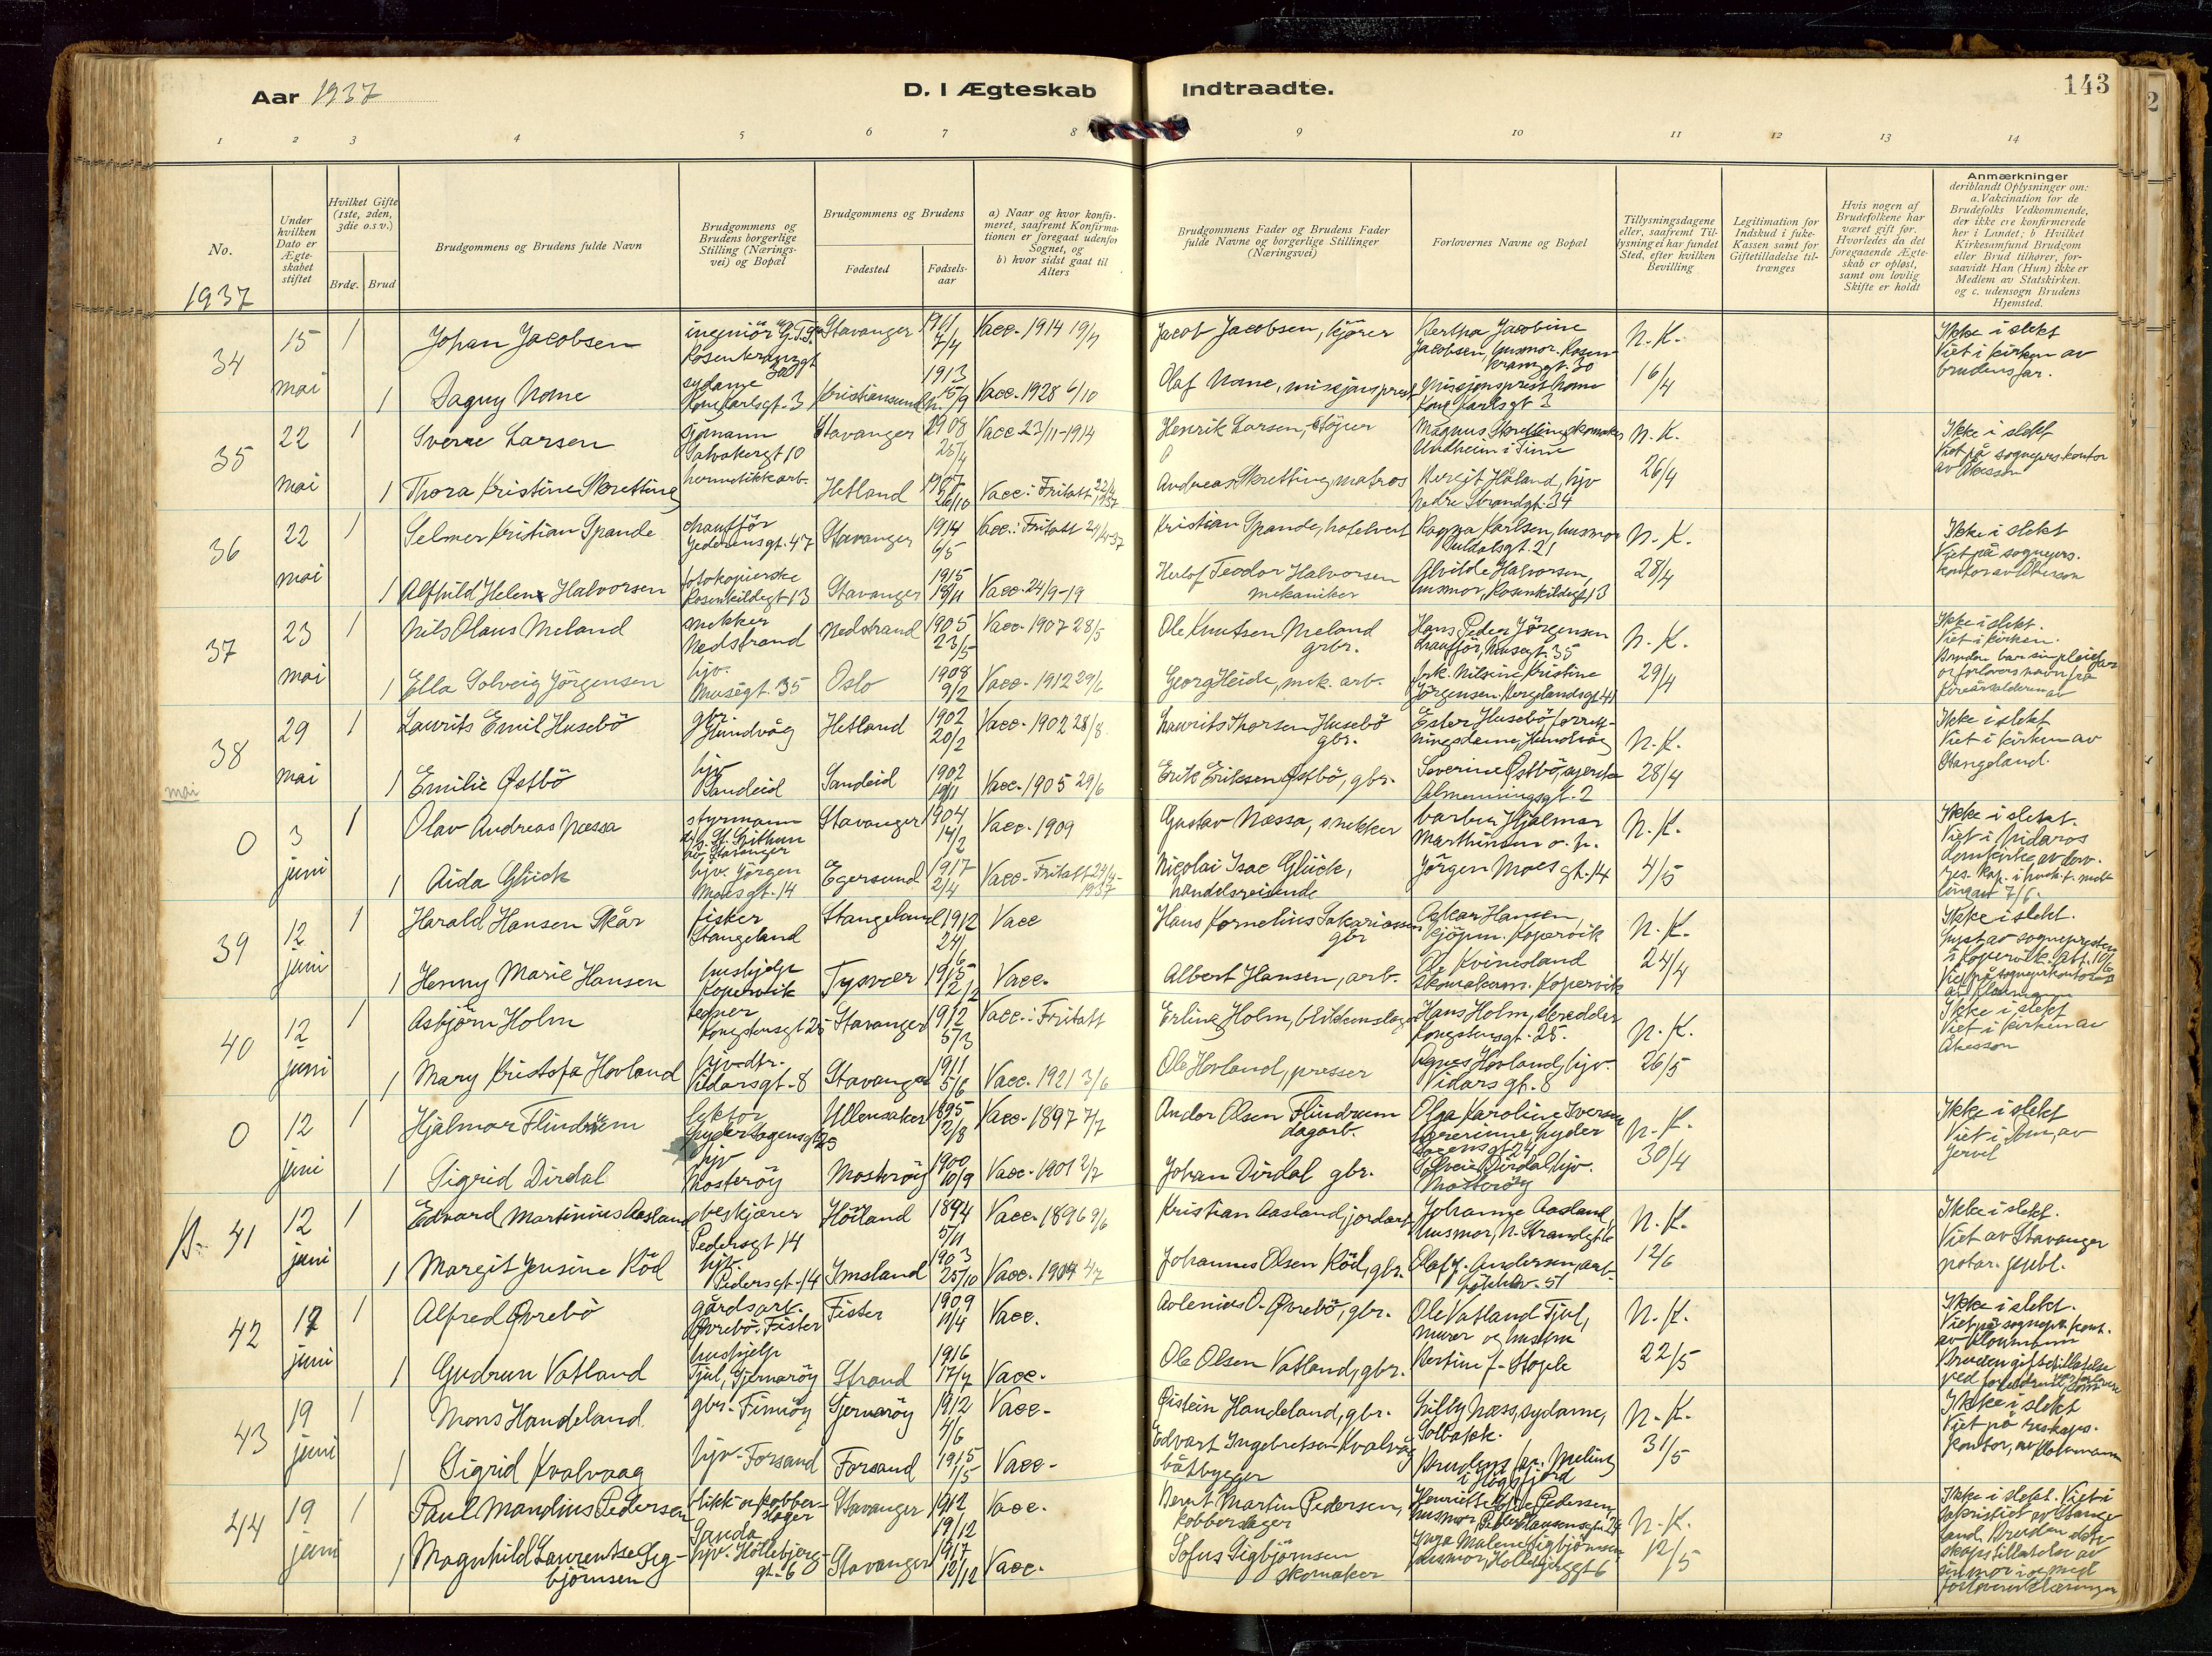 Aar 1937
D. I Ægteskab
Indtraadte.
143
1 2 3 4 5 6 7 8 9 10 11 12 13 14
No.
1937
Under hvilken Dato er Ægteskabet stiftet
Hvilket Gifte (1ste, 2den, 3die o.s.v.)
Brdg. Brud
Brudgommens og Brudens fulde Navn
Brudgommens og Brudens borgerlige Stilling (Næringsvei) og Bopæl
Brudgommens og Brudens
Fødested
Fødselsaar
a) Naar og hvor konfirmeret, saafremt Konfirmationen er foregaat udenfor Sognet, og
b) hvor sidst gaat til Alters
Brudgommens Fader og Brudens Fader fulde Navne og borgerlige Stillinger (Næringsvei)
Forlovernes Navne og Bopæl
Tillysningsdagene eller, saafremt Tillysning ei har fundet Sted, efter hvilken Bevilling
Legitimation for Indskud i Enke-Kassen samt for Giftetilladelse tiltrænges
Hvis nogen af Brudefolkene har været gift før. Hvorledes da det foregaaende Ægteskab er opløst, samt om lovlig Skifte er holdt
Anmærkninger
deriblandt Oplysninger om: a. Vakcination for de Brudefolks Vedkommende, der ikke ere konfirmerede her i Landet; b Hvilket Kirkesamfund Brudgom eller Brud tilhører, forsaavidt Han (Hun) ikke er Medlem av Statskirken. og c. udensogn Brudens Hjemsted.
34 15 mai 1 Johan Jacobsen ingeniör Rosenkranzgt 30 Stavanger 1911 7/4 Vacc. 1914 19/9 Jacob Jacobsen, kjörer Bertha Jacobine Jacobsen, husmor. Rosenkranzgt. 30 N. K. 16/4 Ikke i slekt Viet i kirken av brudens far.
1 Dagny Nome sydame Kong Karlsgt. 3 Kristiansund 1913 15/9 Vacc. 1928 6/10 Olaf Nome, misjonsprest Misjonsprest Nome Kong Karlsgt 3
35 22 mai 1 Sverre Larsen sjömann 10 Stavanger 1908 25/4 Vacc 23/11-1914 Henrik Larsen, Magnus Skretting Undheim i Time N. K. 26/4 Ikke i slekt Viet på sognepr.s kontor av Åkesson
1 Thora Kristine Skretting hermetikkarb. Hetland 1907 26/10 Vacc: Fritatt 22/4 1937 Andreas Skretting, matros Bergit Håland, hjv Nedre Strandgt. 34
36 22 mai 1 Selmer Kristian Spande chaufför Jederensgt. 47 Stavanger 1914 6/5 Vacc.: Fritatt 24/4-37 Kristian Spande, hotelvert Ragna Karlsen, husmor Suldalsgt. 21 N. K. 28/4 Ikke i slekt Viet på sognepr.s kontor av Åkesson
1 Alfhild Helene Halvorsen fotokopierske Rosenkildegt 13 Stavanger 1915 18/11 Vacc. 24/9-19 Herlof Teodor Halvorsen mekaniker Alvilde Halvorsen, husmor, Rosenkildegt. 13
37 23 mai 1 Nils Olaus Meland snekker Nedstrand Nedstrand 1905 23/5 Vacc. 1907 28/5 Ole Knutsen Meland gbr. Hans Peder Jörgensen chaufför, Musegt. 35 N. K. 29/4 Ikke i slekt. Viet i kirken.
1 Ella Solveig Jörgensen hjv. Musegt. 35 Oslo 1908 9/2 Vacc. 1912 29/6 Georg Heide, mek. arb. frk. Nilsine Kristine Jörgensen. Bergelandsgt 41
38 29 mai 1 Laurits Emil Husebö gbr. Hundvåg Hetland 1902 20/2 Vacc. 1902 28/8 Laurits Thorsen Husebö gbr. Ester Husebö, forretningsdame, Hundvåg N. K. 28/4 Ikke i slekt Viet i kirken av Stangeland.
1 Emilie Østbö hjv Sandeid Sandeid 1902 19/11 Vacc. 1905 29/6 Erik Eriksen Østbö, gbr. Severine Østbö, Almenningsgt. 2
mai
0 3 juni 1 Olav Andreas Næssa styrmann d/s. St. Svithun av Stavanger Stavanger 1904 14/2 Vacc. 1909 Gustav Næssa, snekker barber Hjalmar Marthinsen o. h. N. K. 4/5 Ikke i slekt. Viet i Nidaros domkirke av 7/6.
1 Aida Glück hjv. Jörgen Moes gt. 14 Egersund 1917 2/4 Vacc. Fritatt 29/4-1937 Nicolai Isac Glück, handelsreisende Jörgen Moes gt. 14
39 12 juni 1 Harald Hansen Skår fisker Stangeland Stangeland 1912 24/6 Vacc Hans Kornelius Sakariassen gbr Oskar Hansen, kjöpm. Kopervik N. K. 24/4 Ikke i slekt. Lyst av sognepresten i Kopervik. Viet på sogneprs kontor av Klaumann
1 Henny Marie Hansen hushjelp Kopervik Tysvær 1915 2/2 Vacc. Albert Hansen, arb. Ole Kvinesland skomakerm. Kopervik
40 12 juni 1 Asbjörn Holm tegner Kongstensgt 25 Stavanger 1912 5/3 Vacc.: Fritatt Erling Holm, blikkenslager Hans Holm, skredder Kongstensgt. 25. N. K. 26/5 Ikke i slekt Viet i kirken av Åkesson
1 Mary Kristofa Hovland hjv. dtr. Vidarsgt. 8 Stavanger 1911 5/6 Vacc. 1921 3/6 Ole Hovland, presser Agnes Hovland, hjv. Vidars gt. 8
0 12 juni 1 Hjalmar Flindrum lektor Lyder Sagensgt 25 Ullensaker 1895 12/8 Vacc. 1897 7/7 Andor Olsen Flindrum dagarb. Olga Karoline Iversen lærerinne, Lyder Sagensgt 24 N. K. 30/4 Ikke i slekt Viet i Dom. av Jervel
1 Sigrid Dirdal hjv Mosteröy Mosteröy 1900 10/9 Vacc. 1901 2/7 Johan Dirdal gbr. Solveig Dirdal, hjv. Mosteröy
B. 41 12 juni 1 Edvard Martinius Aasland beskjærer Pedersgt 14 Höiland 1894 5/11 Vacc. 1896 9/6 Kristian Aasland, jordarb Johanne Aasland, husmor, N. Strandgt 16 N. K. 12/6 Ikke i slekt. Viet av Stavanger notar. publ.
1 Margit Jensine Köd hjv. Pedersgt. 14 Imsland 1903 25/10 Vacc. 1904 4/7 Johannes Olsen Köd, gbr. Olaf J. Andersen, arb. 51
42 12 juni 1 Alfred Øvrebö gårdsarb. Øvrebö. Fister Fister 1909 11/4 Vacc. Aolenius O. Øvrebö, gbr. Ole Vatland Tjul, murer og hustru N. K. 22/5 Ikke i slekt. Viet på sognepr. kont. av Klaumann
1 Gudrun Vatland hushjelp Tjul, Sjernaröy Strand 1916 17/7 Vacc. Ole Olsen Vatland, gbr. Bertine J. Stople
43 19 juni 1 Mons Handeland gbr. Finnöy Sjernaröy 1912 4/6 Vacc. Øistein Handeland, gbr. Lilly Næss, sydame, Solbakk. N. K. 31/5 Ikke i slekt Viet på reskaps. kontor, av Klaumann
1 Sigrid Kvalvaag hjv. Forsand Forsand 1915 1/5 Vacc. Edvart Ingebretsen Kvalvåg båtbygger Brudens far. Meling i Högsfjord
44 19 juni 1 Paul Mandius Pedersen blikk- og kobberslager Sandn. Stavanger 1912 19/12 Vacc. Bernt Martin Pedersen, kobberslager Henriette Pedersen, husmor, Peder Claussensgt. 24 N. K. 12/5 Ikke i slekt. Viet i sakristiet av Stangeland. Bruden ekteskapstillatelse av sin mor
1 Magnhild Laurentse Sigbjörnsen hjv. Hollebjerggt. 6 Stavanger 1917 12/12 Vacc. Sofus Sigbjörnsen skomaker Inga Malene Sigbjörnsen, husmor, Hollebjerggt 6